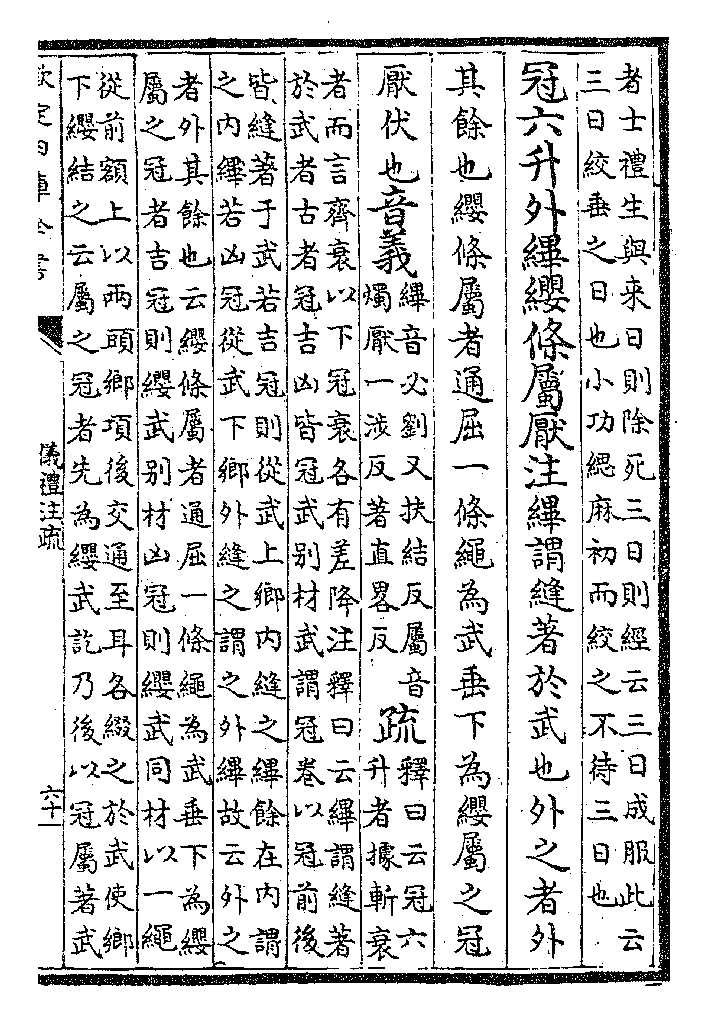 者士禮生與来日則除死三日則經云三日成服此云
三日絞垂之日也小功緦麻初而絞之不待三日也
冠六升外縪纓條屬厭注縪謂縫著於武也外之者外
其餘也纓條屬者通屈一條繩為武垂下為纓屬之冠
厭伏也音義縪音必劉又扶結反屬音
燭厭一涉反著直畧反
疏釋曰云冠六
升者據斬衰
者而言齊衰以下冠衰各有差降注釋曰云縪謂縫著
於武者古者冠吉凶皆冠武别材武謂冠卷以冠前後
皆縫著于武若吉冠則從武上鄉内縫之縪餘在内謂
之内縪若凶冠從武下鄉外縫之謂之外縪故云外之
者外其餘也云纓條屬者通屈一條繩為武垂下為纓
屬之冠者吉冠則纓武别材凶冠則纓武同材以一繩
從前額上以兩頭鄉項後交通至耳各綴之於武使鄉
下纓結之云屬之冠者先為纓武訖乃後以冠屬著武
欽定四庫全書
儀禮注疏
六十一